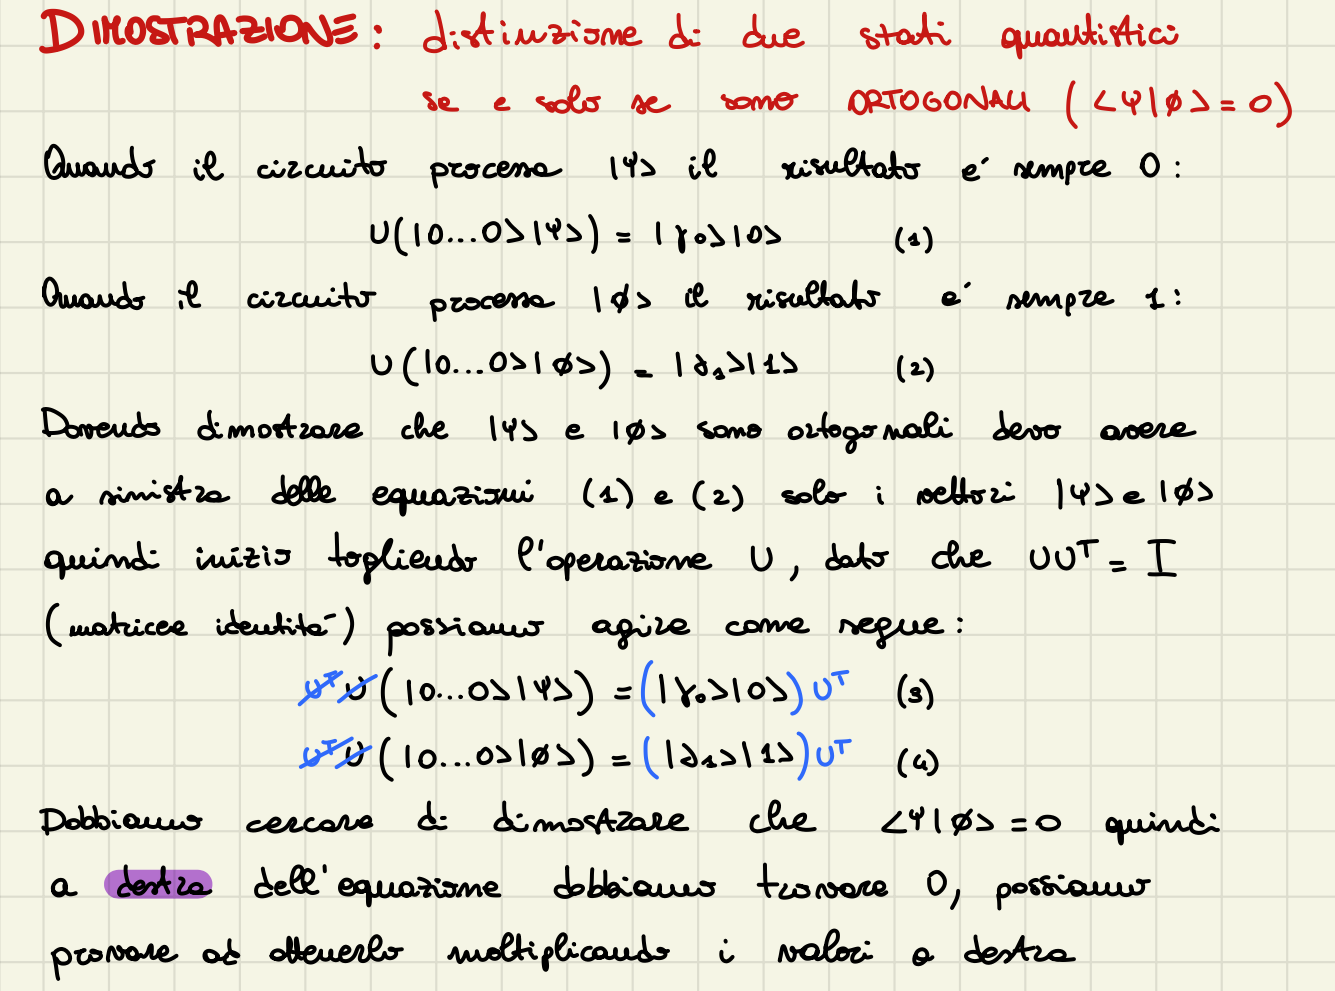 DIMOSTRAZIONE: distinzione di due stati quantistici
se e solo se sono ORTOGONALI (<ψ|ø>=0)
Quando il circuito processa |ψ> il risultato e' sempre 0:
U(|0...0>|ψ>) = |γ₀>|0> (1)
Quando il circuito processa |ø> il risultato e' sempre 1:
U(|0...0>|ø>) = |γ₁>|1> (2)
Dovendo dimostrare che |ψ> e |ø> sono ortogonali devo avere
a sinistra delle equazioni (1) e (2) solo i vettori |ψ> e |ø>
quindi inizio togliendo l'operazione U, dato che UUᵀ = I
(matrice identità) possiamo agire come segue:
UᵀU(|0...0>|ψ>) = (|γ₀>|0>)Uᵀ (3)
UᵀU(|0...0>|ø>) = (|γ₁>|1>)Uᵀ (4)
Dobbiamo cercare di dimostrare che <ψ|ø>=0 quindi
a destra dell'equazione dobbiamo trovare 0, possiamo
provare ad ottenerlo moltiplicando i valori a destra